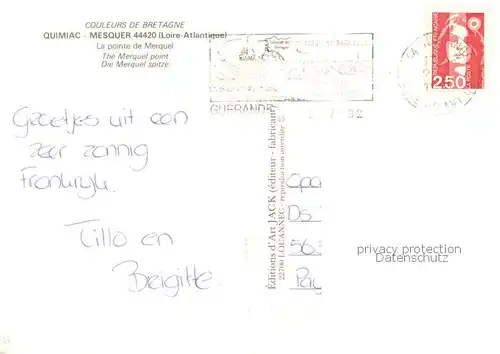 COULEURS DE BRETAGNE
QUIMIAC - MESQUER 44420 (Loire-Atlantique)
La pointe de Merquel
The Merquel point
Die Merquel spitze
GUERANDE
92
RÉPUBLIQUE FRANÇAISE
LA POSTE
2,50
Groetjes uit een
zeer zonnig
Frankrijk.
Tillo en
Brigitte.
Editions d'Art JACK (éditeur - fabricant)
22700 LOUANNEC - reproduction interdite
Ds
Pay
privacy protection
Datenschutz